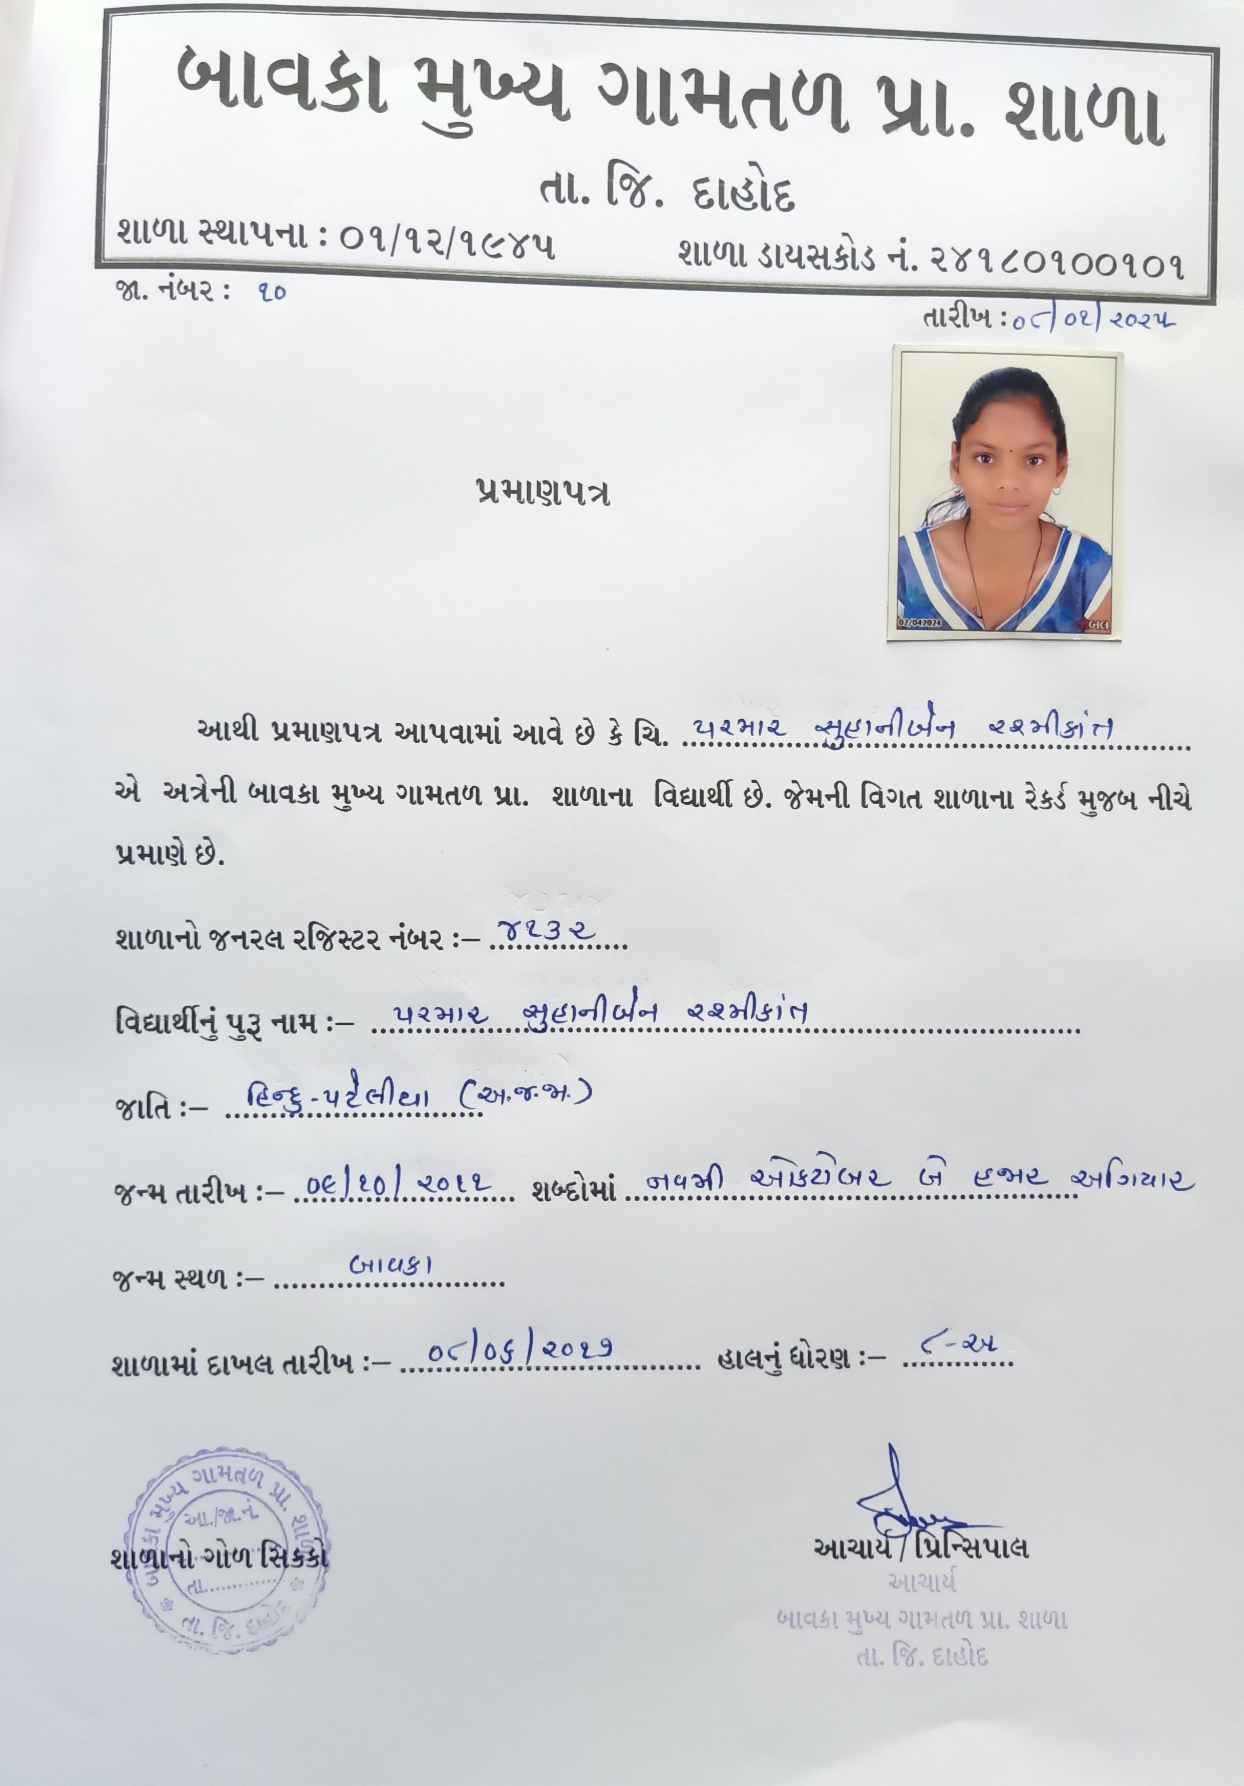 બાવકા મુખ્ય ગામતળ પ્રા. શાળા
તા. જિ. દાહોદ
શાળા સ્થાપના : ૦૧/૧૨/૧૯૪૫ શાળા ડાયસકોડ નં. ૨૪૧૮૦૧૦૦૧૦૧
જા. નંબર : ૧૦
તારીખ : ૦૮/૦૧/૨૦૨૫
પ્રમાણપત્ર
આથી પ્રમાણપત્ર આપવામાં આવે છે કે ચિ. પરમાર સુહાનીબેન રશ્મીકાંત
એ અત્રેની બાવકા મુખ્ય ગામતળ પ્રા. શાળાના વિદ્યાર્થી છે. જેમની વિગત શાળાના રેકર્ડ મુજબ નીચે
પ્રમાણે છે.
શાળાનો જનરલ રજિસ્ટર નંબર :– ૪૧૩૨
વિદ્યાર્થીનું પુરૂ નામ :– પરમાર સુહાનીબેન રશ્મીકાંત
જાતિ :– હિન્દુ-પટેલીયા (અ.જ.જા.)
જન્મ તારીખ :– ૦૯/૧૦/૨૦૧૧ શબ્દોમાં નવમી ઓકટોબર બે હજાર અગિયાર
જન્મ સ્થળ :– બાવકા
શાળામાં દાખલ તારીખ :– ૦૮/૦૬/૨૦૧૭ હાલનું ધોરણ :– ૮-અ
બાવકા મુખ્ય ગામતળ પ્રા. શાળા
આ./જા.નં.
તા.
તા. જિ. દાહોદ
શાળાનો ગોળ સિક્કો
આચાર્ય / પ્રિન્સિપાલ
આચાર્ય
બાવકા મુખ્ય ગામતળ પ્રા. શાળા
તા. જિ. દાહોદ